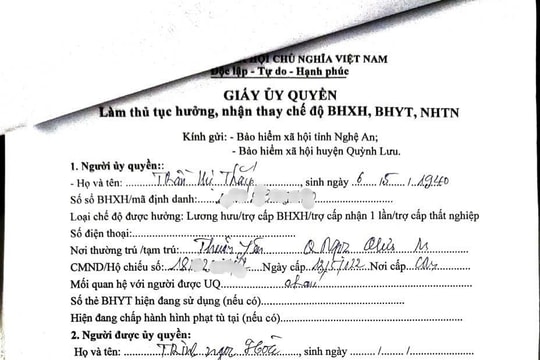 HỘI CHỦ NGHĨA VIỆT NAM
Độc lập - Tự do - Hạnh phúc
GIẤY ỦY QUYỀN
Làm thủ tục hưởng, nhận thay chế độ BHXH, BHYT, NHTN
Kính gửi: - Bảo hiểm xã hội tỉnh Nghệ An;
- Bảo hiểm xã hội huyện Quỳnh Lưu.
1. Người ủy quyền::
- Họ và tên: Trần Thị Thắp, sinh ngày 6 / 5 / 1940
Số sổ BHXH/mã định danh:
Loại chế độ được hưởng: Lương hưu/trợ cấp BHXH/trợ cấp nhận 1 lần/trợ cấp thất nghiệp
Số điện thoại:
Nơi thường trú /tạm trú: Thuận Yên Q Ngọc
CMND/Hộ chiếu số: 18 Ngày cấp Nơi cấp
Mối quan hệ với người được UQ
Số thẻ BHYT hiện đang sử dụng (nếu có)
Hiện đang chấp hành hình phạt tù tại (nếu có)
2. Người được ủy quyền:
Họ và tên: Trịnh Ngọc, sinh ngày / /